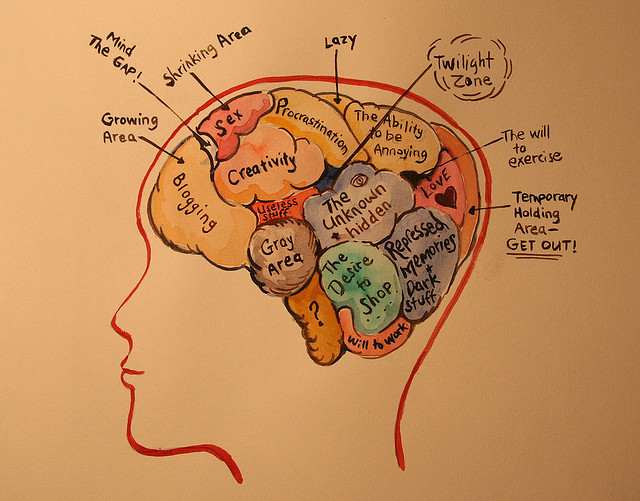 Mind
The GAP!
Shrinking Area
Lazy
Twilight
Zone
Growing
Area
Sex
Procrastination
The Ability
to be
Annoying
The will
to
exercise
Blogging
Creativity
Useless
Stuff
The
Unknown
+ hidden
LOVE
Temporary
Holding
Area-
GET OUT!
Gray
Area
The
Desire
to
Shop
Repressed
Memories
+
Dark
stuff
?
Will to Work